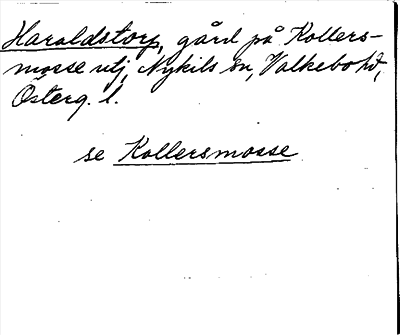 Haraldstorp, gård på Kollers-
mosse utj, Nykils sn, Valkebo hd,
Österg. l.
se Kollersmosse